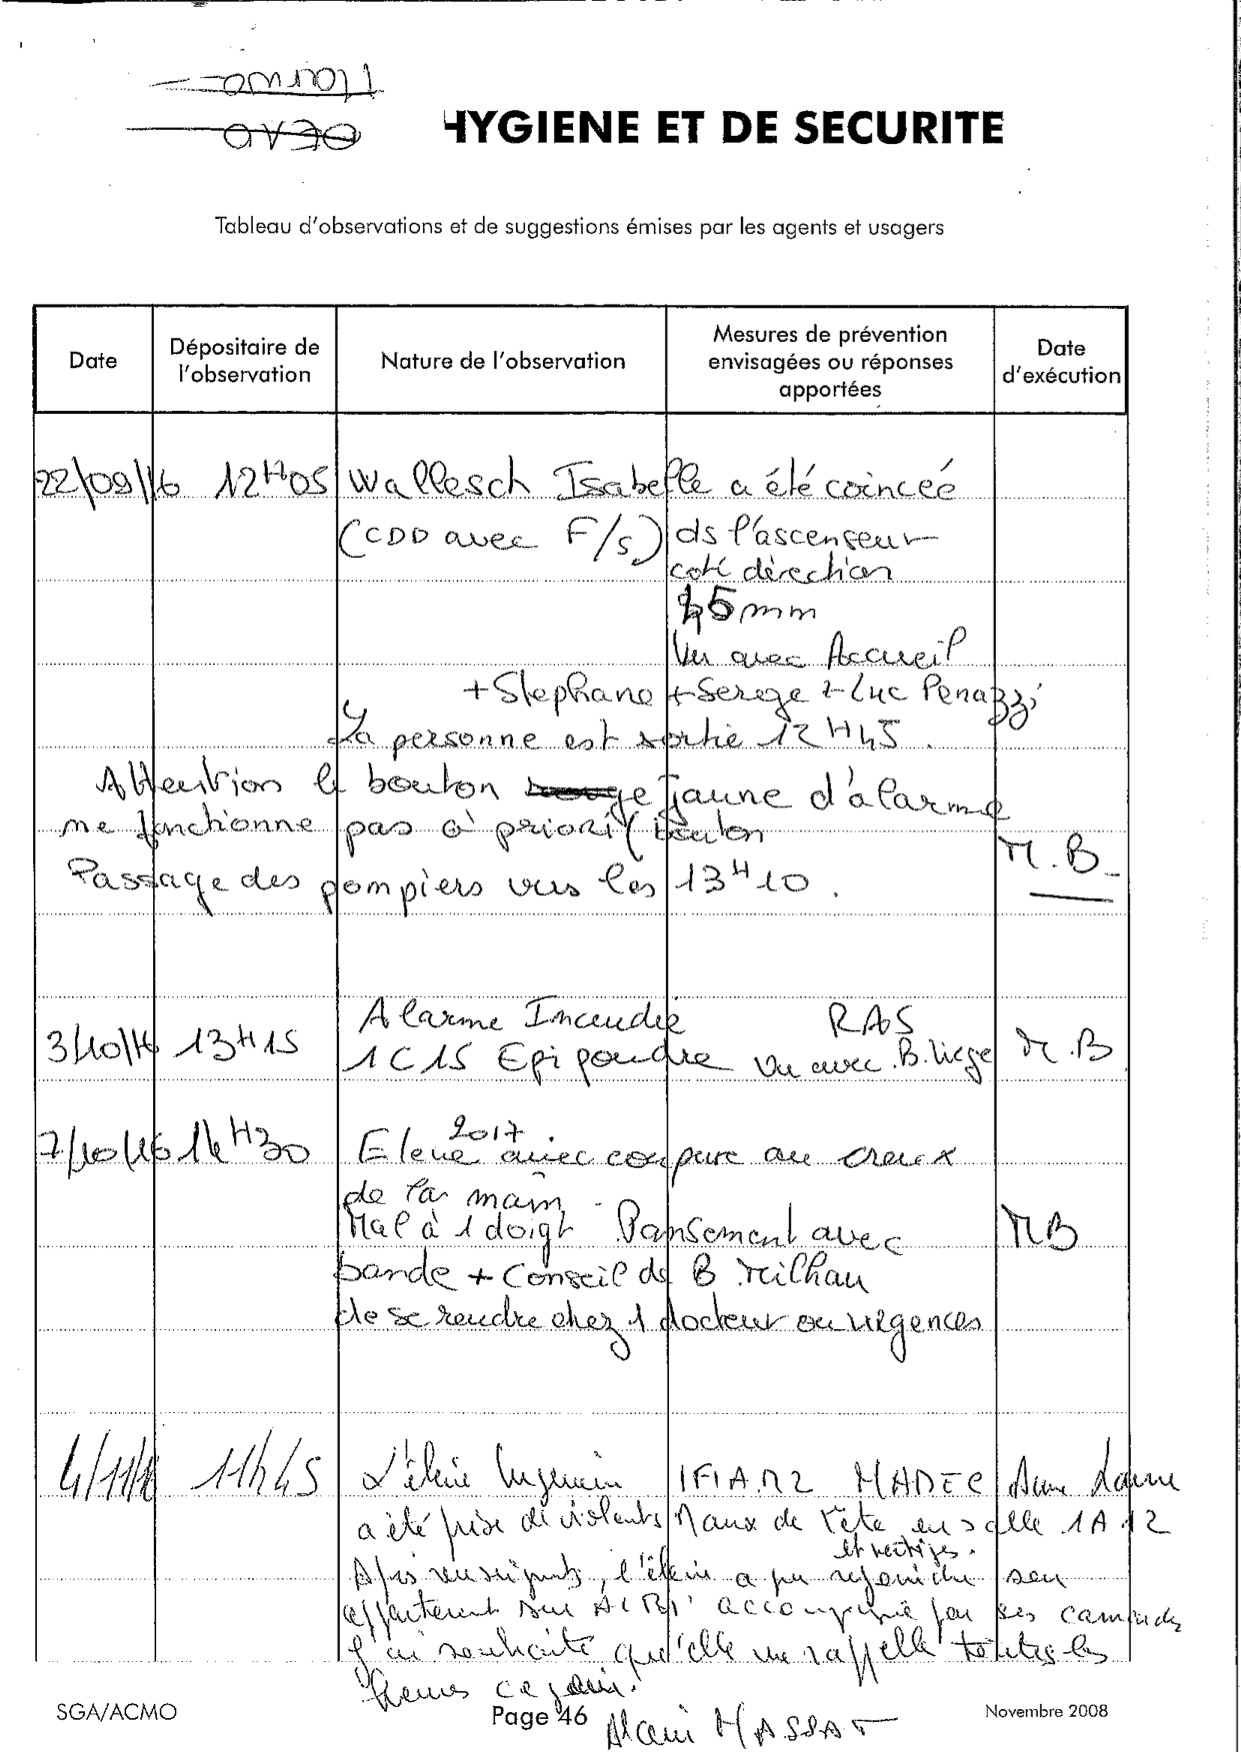 HYGIENE ET DE SECURITE
Tableau d'observations et de suggestions émises par les agents et usagers
Date
Dépositaire de l'observation
Nature de l'observation
Mesures de prévention envisagées ou réponses apportées
Date d'exécution
22/09/16 12H05 Wallesch Isabelle a été coinceé
(CDD avec F/S) ds l'ascenseur
coté direction
45 mm
Vu avec Accueil
+ Stephane + Serege + Luc Penazzi
La personne est sortie 12H45.
Attention le bouton jaune d'alarme
ne fonctionne pas à priori bouton
Passage des pompiers vers les 13H10.
M.B.
Alarme Incendie RAS
3/10/16 13H15 1C15 Epi poudre Vu avec B. Liege M.B
2017
7/10/16 14H30 Eleve avec coupure au creux
de la main.
Mal à 1 doigt Pansement avec MB
bande + Conseil de B Milhau
de se rendre chez 1 docteur ou urgences
4/11/16 11h45 L'élève Ingénieur IFIAM2 MADEC Anne Laure
a été prise de violents Maux de Tête en salle 1A12
et vertiges.
Après, l'élève a pu rejoindre son
appartement sur accompagné par ses camarades
J'ai souhaité qu'elle me rappelle toutes les
heures ce jour.
Alain MASSAT
SGA/ACMO
Page 46
Novembre 2008